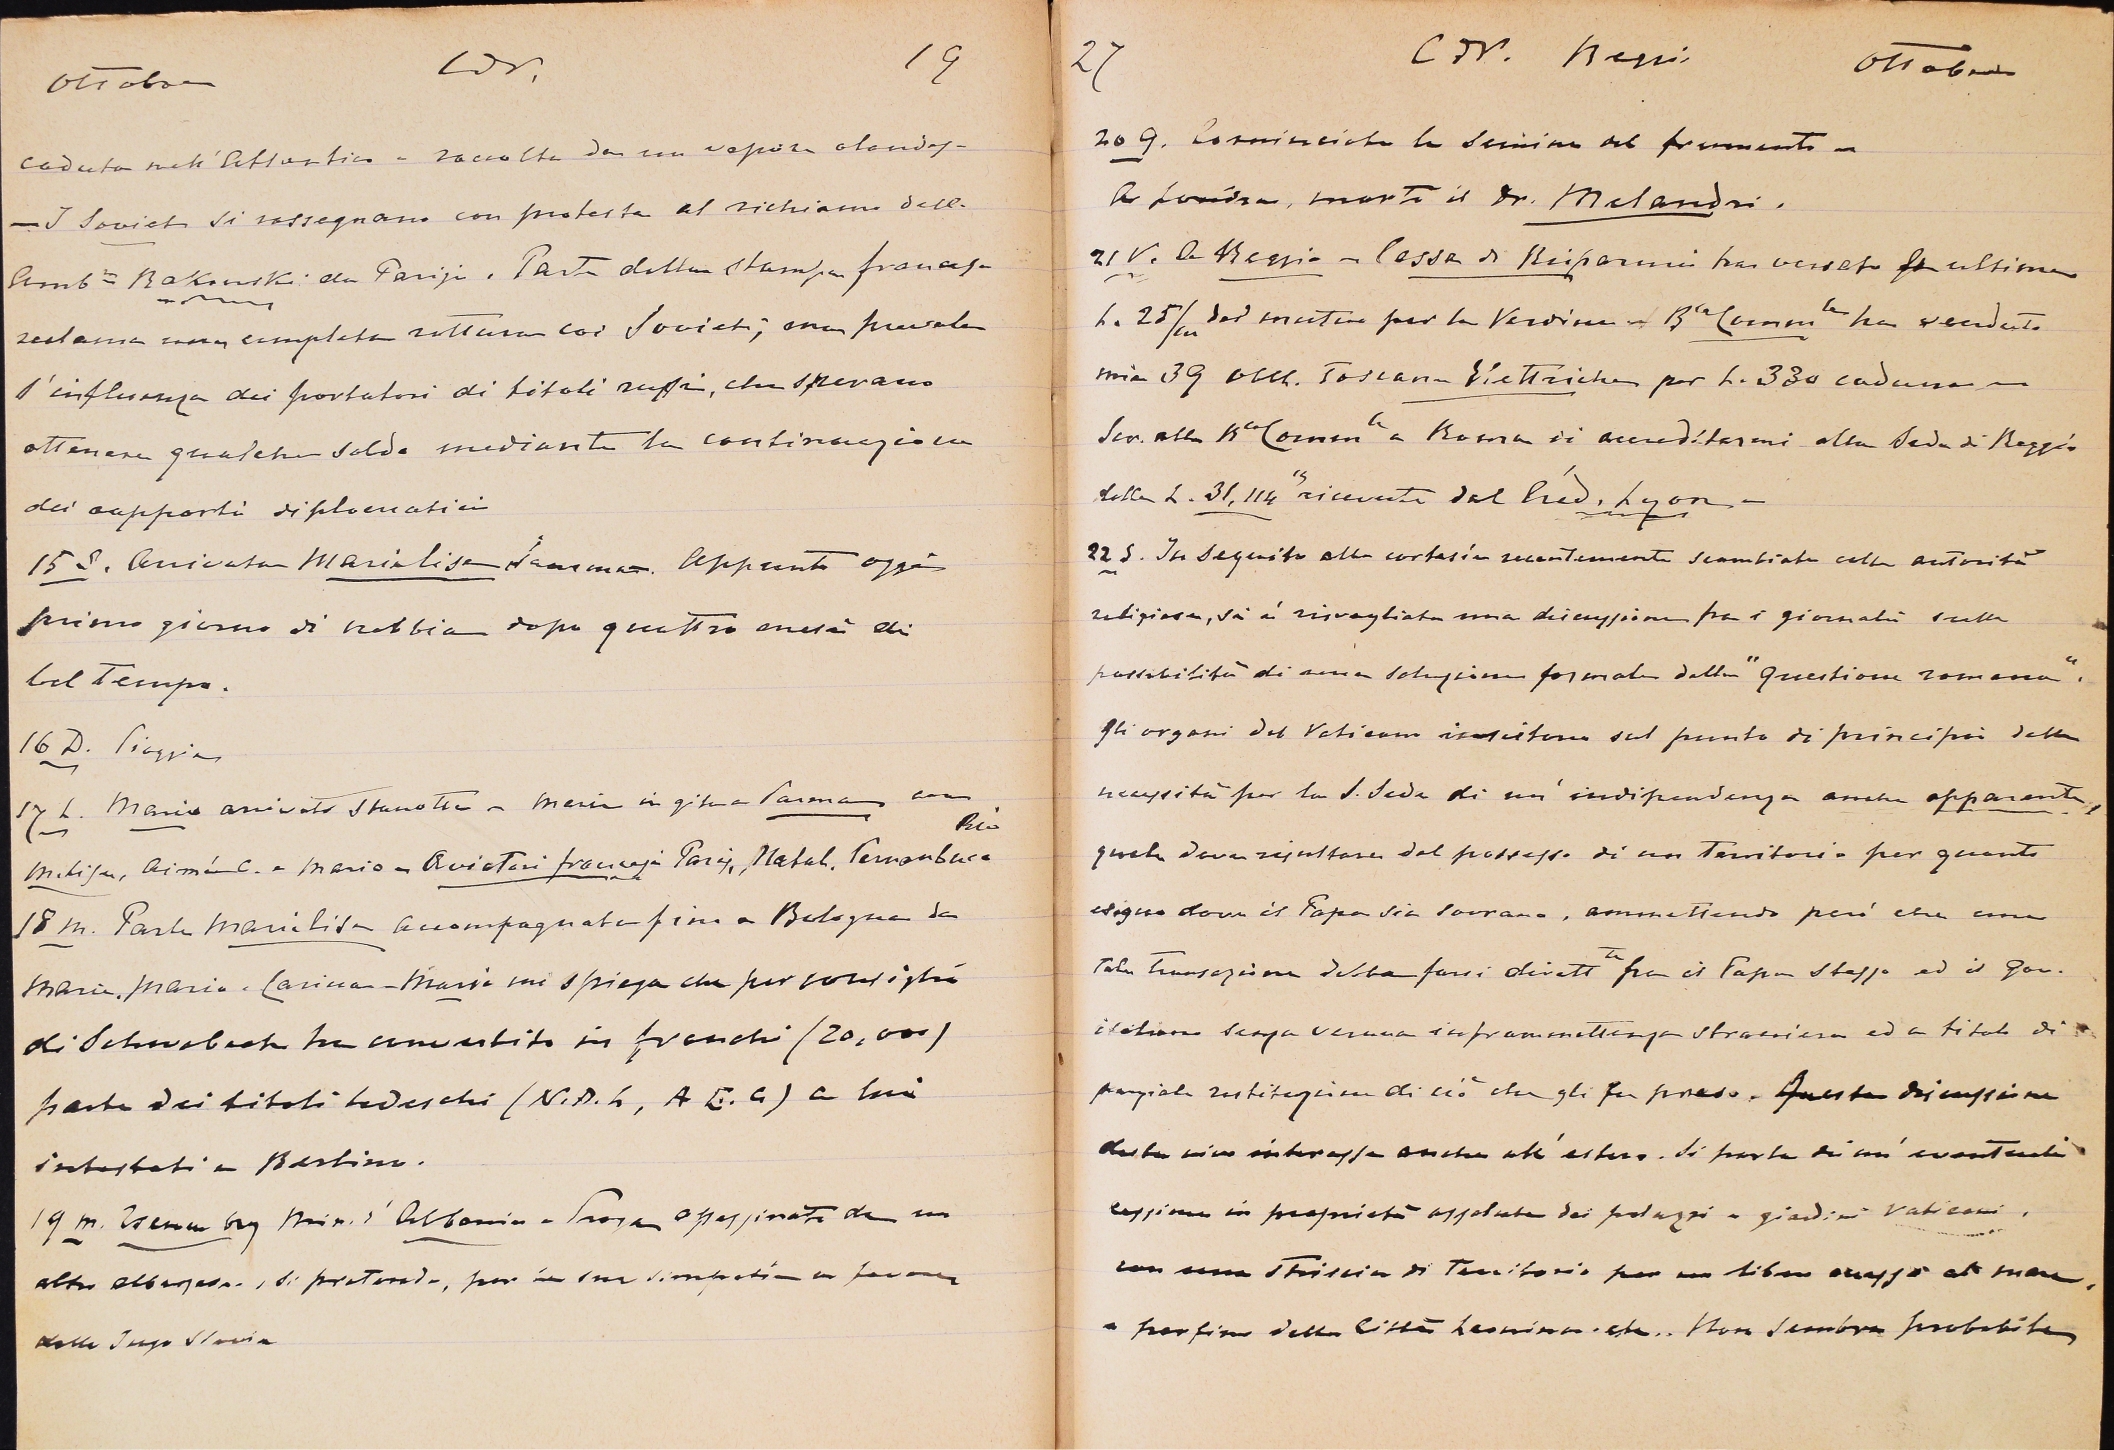 Ottobre CdN. 19
caduta nell'Atlantico e raccolta da un vapore olandese
— I Soviet si rassegnano con protesta al richiamo dell'
Amb.re Rakowski da Parigi. Parte della stampa francese
reclama una completa rottura coi Soviet; ma prevale
l'influenza dei portatori di titoli russi, che sperano
ottenere qualche soldo mediante la continuazione
dei rapporti diplomatici
15 S. Arrivata Marialisa. Appunto oggi
primo giorno di nebbia dopo quattro mesi di
bel tempo.
16 D. Pioggia
17 L. Mario arrivato stanotte - Maria in gita a Parma con
Rio
M.Lisa, Aimée C. e Mario - Aviatori francesi Parig, Natal, Pernambuco
18 M. Parte Marialisa accompagnata fino a Bologna da
Maria, Mario e Carina - Mario mi spiega che per consiglio
di Schwabach ha convertito in franchi (20,000)
parte dei titoli tedeschi (N.D.L, A.E.G) a lui
intestati a Berlino.
19 M. Min. d'Albania a Praga assassinato da un
altro albanese, si pretende, per la sua simpatia in favore
della Jugo Slavia
27 CdN. Reggi. Ottobre
20 G. Cominciata la semina del frumento -
A morto il Dr. Melandri.
21 V. A Reggio - Cassa di Risparmio ha versato ultime
L. 25/m del mutuo per la Verdina - B.ca Comm.le ha venduto
mie 39 Obbl. Toscana Elettriche per L. 330 caduna -
Scr. alla B.ca Comm.le a Roma di accreditarmi alla Sede di Reggio
delle L. 31,114 ricevute dal Créd. Lyon. -
22 S. In seguito alle cortesie recentemente scambiate colle autorità
religiose, si è risvegliata una discussione fra i giornali sulla
possibilità di una soluzione formale della "Questione romana".
Gli organi del Vaticano insistono sul punto di principio della
necessità per la S. Sede di un' indipendenza anche apparente,
quale deve risultare dal possesso di un territorio per quanto
esiguo dove il Papa sia sovrano, ammettendo però che una
tale transazione debba farsi dirett.te fra il Papa stesso ed il Gov.
italiano senza veruna inframmettenza straniera ed a titolo di
parziale restituzione di ciò che gli fu preso. Questa discussione
desta vivo interesse anche all'estero. Si parla di un' eventuale
cessione in proprietà assoluta dei palazzi e giardini Vaticani,
con una striscia di territorio per un libero accesso al mare,
e perfino della Città Leonina etc.. Non sembra probabile